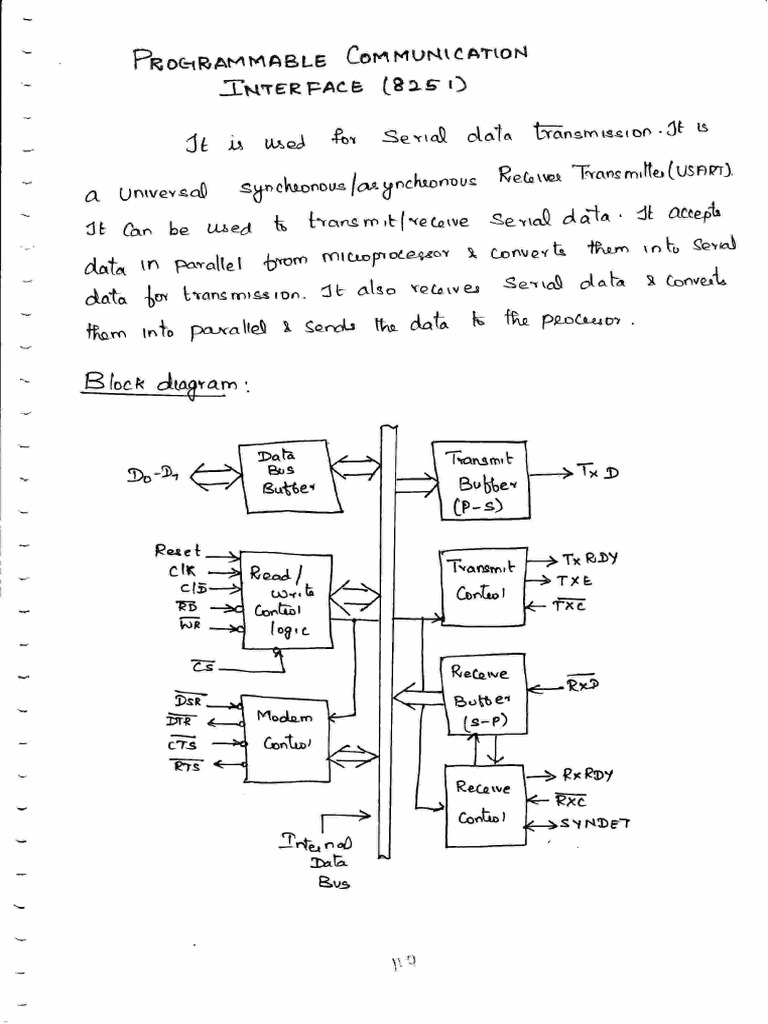 PROGRAMMABLE COMMUNICATION
INTERFACE (8251)
It is used for Serial data transmission. It is
a Universal Synchronous/asynchronous Receiver Transmitter (USART).
It Can be used to transmit/receive Serial data. It accepts
data in parallel from microprocessor & converts them into Serial
data for transmission. It also receives Serial data & Converts
them into parallel & sends the data to the processor.
Block diagram:
D0-D7
Data
Bus
Buffer
Transmit
Buffer
(P-S)
TxD
Reset
ClK
C/D̅
R̅D̅
W̅R̅
C̅S̅
Read/
Write
Control
logic
Transmit
Control
TxRDY
TXE
T̅X̅C̅
D̅S̅R̅
D̅T̅R̅
C̅T̅S̅
R̅T̅S̅
Modem
Control
Receive
Buffer
(S-P)
R̅x̅D̅
Receive
Control
RxRDY
R̅X̅C̅
SYNDET
Internal
Data
Bus